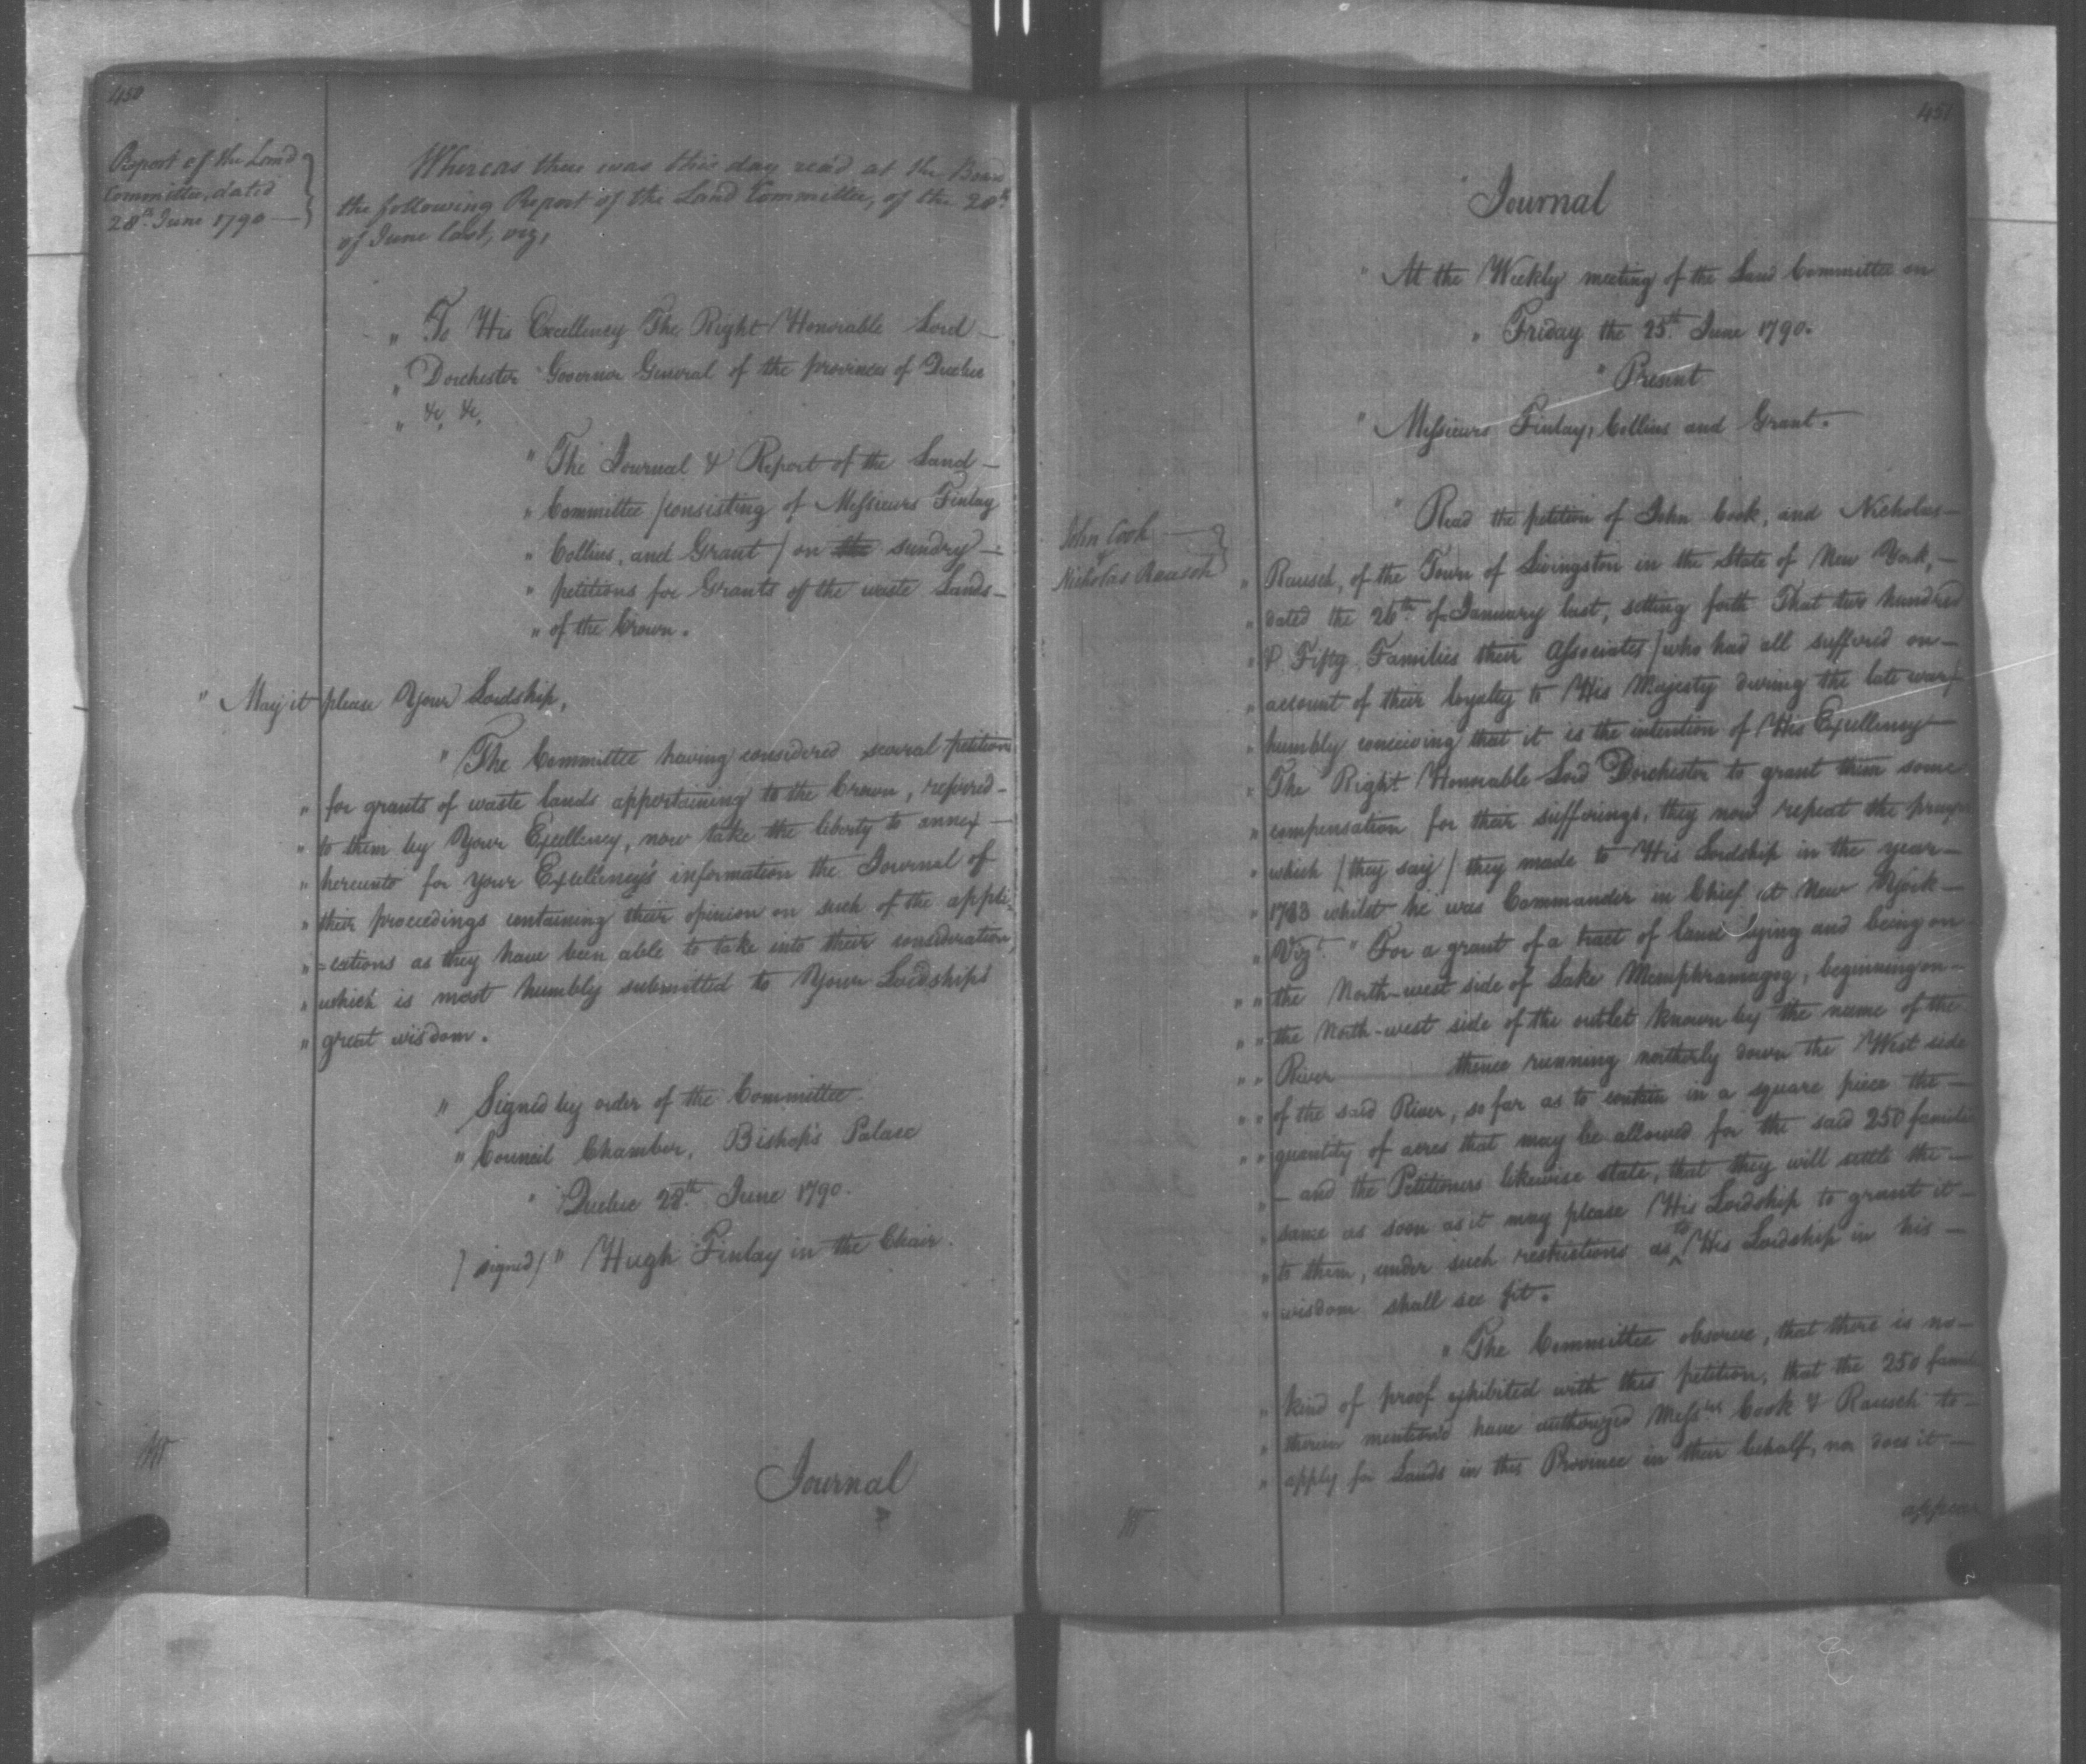 450
Report of the Land
Committee, dated
28th June 1790
Whereas there was this day read at the Board
the following Report of the Land Committee, of the 28th
of June last, viz,
" To His Excellency The Right Honorable Lord
" Dorchester Governor General of the provinces of Quebec
" &c, &c,
" The Journal & Report of the Land
" Committee (consisting of Messieurs Finlay
" Collins, and Grant) on the sundry
" petitions for Grants of the waste Lands
" of the Crown.
" May it please Your Lordship,
" The Committee having considered several petitions
" for grants of waste lands appertaining to the Crown, referred
" to them by Your Excellency, now take the liberty to annex
" hereunto for your Excellency's information the Journal of
" their proceedings containing their opinion on such of the appli-
" =cations as they have been able to take into their consideration,
" which is most humbly submitted to Your Lordship's
" great wisdom.
" Signed by order of the Committee.
" Council Chamber, Bishop's Palace
" Quebec 28th June 1790.
(signed) " Hugh Finlay in the Chair.
Journal
451
Journal
" At the Weekly meeting of the Land Committee on
" Friday the 25th June 1790.
" Present
" Messieurs Finlay, Collins and Grant.
John Cook
&
Nicholas Rausch
" Read the petition of John Cook, and Nicholas
" Rausch, of the Town of Livingston in the State of New York,
" dated the 26th of January last, setting forth That two hundred
" & Fifty Families their Associates (who had all suffered on
" account of their loyalty to His Majesty during the late war)
" humbly conceiving that it is the intention of His Excellency
" The Right Honorable Lord Dorchester to grant them some
" compensation for their sufferings, they now repeat the prayer
" which (they say) they made to His Lordship in the year
" 1783 whilst he was Commander in Chief at New York
" Vizt. " For a grant of a tract of land lying and being on
" " the North-west side of Lake Memphramagog, beginning on
" " the North-west side of the outlet known by the name of the
" " River thence running northerly down the West side
" " of the said River, so far as to contain in a square piece the
" " quantity of acres that may be allowed for the said 250 families
" – and the Petitioners likewise state, that they will settle the
" same as soon as it may please His Lordship to grant it
" to them, under such restrictions as to His Lordship in his
" wisdom shall see fit.
" The Committee observe, that there is no
" kind of proof exhibited with this petition, that the 250 families
" therein mention'd have authorized Messrs Cook & Rausch to
" apply for Lands in this Province in their behalf, nor does it
appear